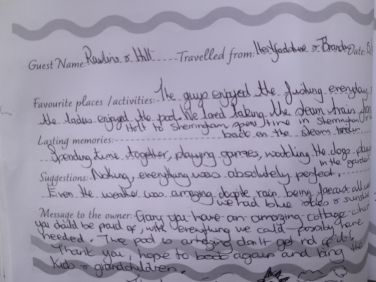 Guest Name: Rawlins & Hill Travelled from: Hertfordshire & Bramley Date:
Favourite places / activities: The guys enjoyed the fucking everyday
the ladies enjoyed the pool. We loved taking the steam train from
Holt to Sherringham, spend time in Sherringham
back on the steam train.
Lasting memories:
Spending time together, playing games, watching the dogs play
in the garden
Suggestions: Nothing, everything was absolutely perfect.
Even the weather was amazing despite rain being forecast all
we had blue skies & sunshine
Message to the owner: Gary you have an amazing cottage which
you should be proud of, with everything we could possibly have
needed. The pool is amazing don't get rid of it
Thank you, hope to back again and bring the
Kids & grandchildren.